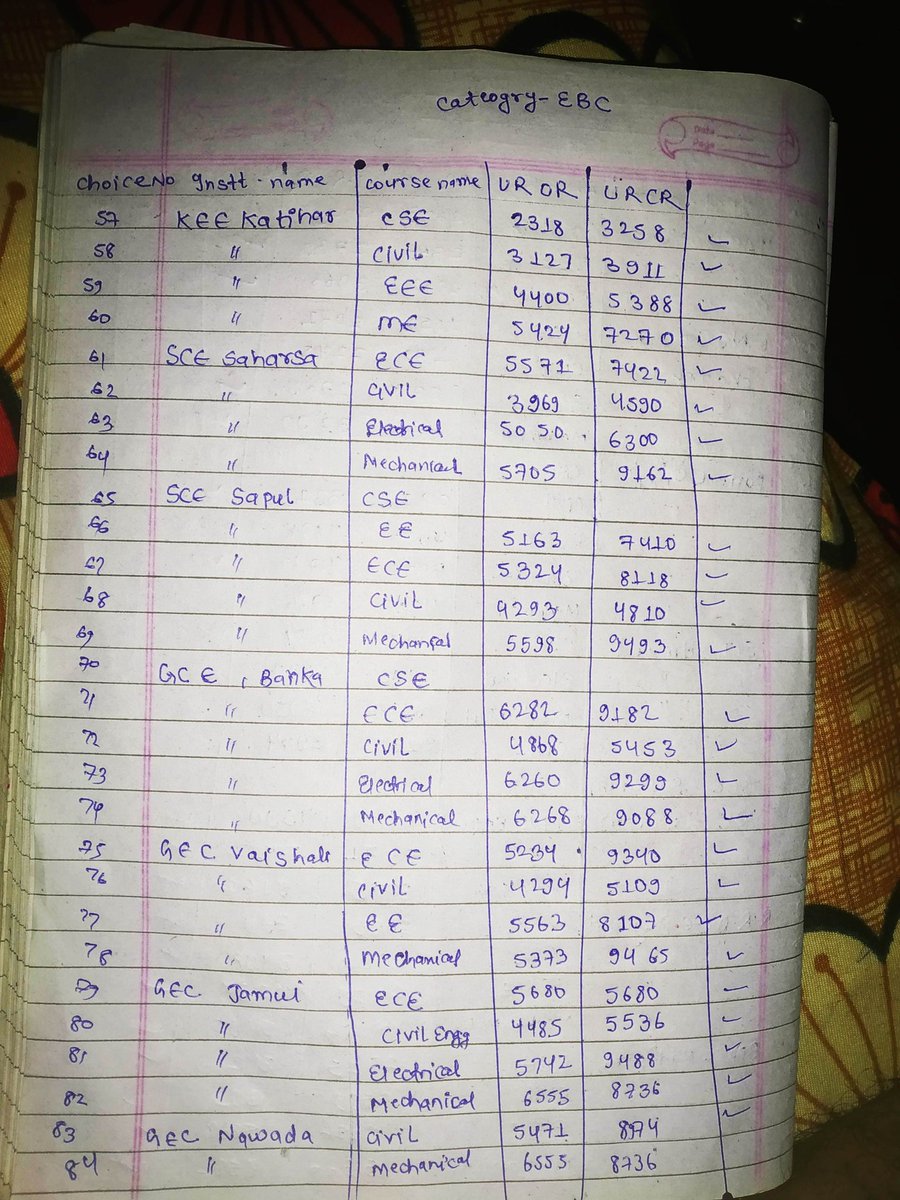 Cateogry- EBC
Choice No Instt - name course name UR OR URCR
57 KEE Katihar CSE 2318 3258 ✓
58 " Civil 3127 3911 ✓
59 " EEE 4400 5388 ✓
60 " ME 5424 7270 ✓
61 SCE Saharsa ECE 5571 7422 ✓
62 " Civil 3969 4590 ✓
63 " Electrical 5050 6300 ✓
64 " Mechanical 5705 9162 ✓
65 SCE Sapul CSE
66 " EE 5163 7410 ✓
67 " ECE 5324 8118 ✓
68 " Civil 4293 4810 ✓
69 " Mechanical 5598 9493 ✓
70 GCE, Banka CSE
71 " ECE 6282 9182 ✓
72 " Civil 4868 5453 ✓
73 " Electrical 6260 9299 ✓
74 " Mechanical 6268 9088 ✓
75 GEC Vaishali ECE 5234 9340 ✓
76 " Civil 4294 5109 ✓
77 " EE 5563 8107 ✓
78 " Mechanical 5373 9465 ✓
79 GEC Jamui ECE 5680 5680 ✓
80 " Civil Engg 4485 5536 ✓
81 " Electrical 5742 9488 ✓
82 " Mechanical 6555 8736 ✓
83 GEC Nawada Civil 5471 ✓
84 " Mechanical 6555 8736